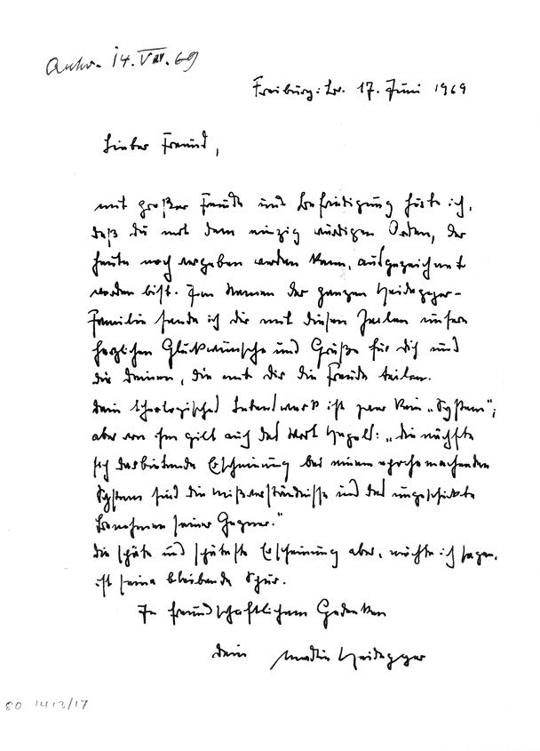 Antw. 14. VIII. 69
Freiburg i. Br. 17. Juni 1969
Lieber Freund,
mit großer Freude und Befriedigung hörte ich,
daß du mit dem einzig würdigen Orden, der
heute noch vergeben werden kann, ausgezeichnet
worden bist. Im Namen der ganzen Heidegger-
Familie sende ich dir mit diesen Zeilen unsere
herzlichen Glückwünsche und Grüße für dich und
die Deinen, die mit dir die Freude teilen.
Dein theologisches Lebenswerk ist zwar kein „System“;
aber von ihm gilt auch das Wort Hegels: „die nächste
sich darbietende Erscheinung bei einem epochemachenden
System sind die Mißverständnisse und das ungeschickte
Benehmen seiner Gegner.“
Die späte und späteste Erscheinung aber, möchte ich sagen,
ist seine bleibende Spur.
In freundschaftlichem Gedenken
Dein Martin Heidegger
80 1413/17